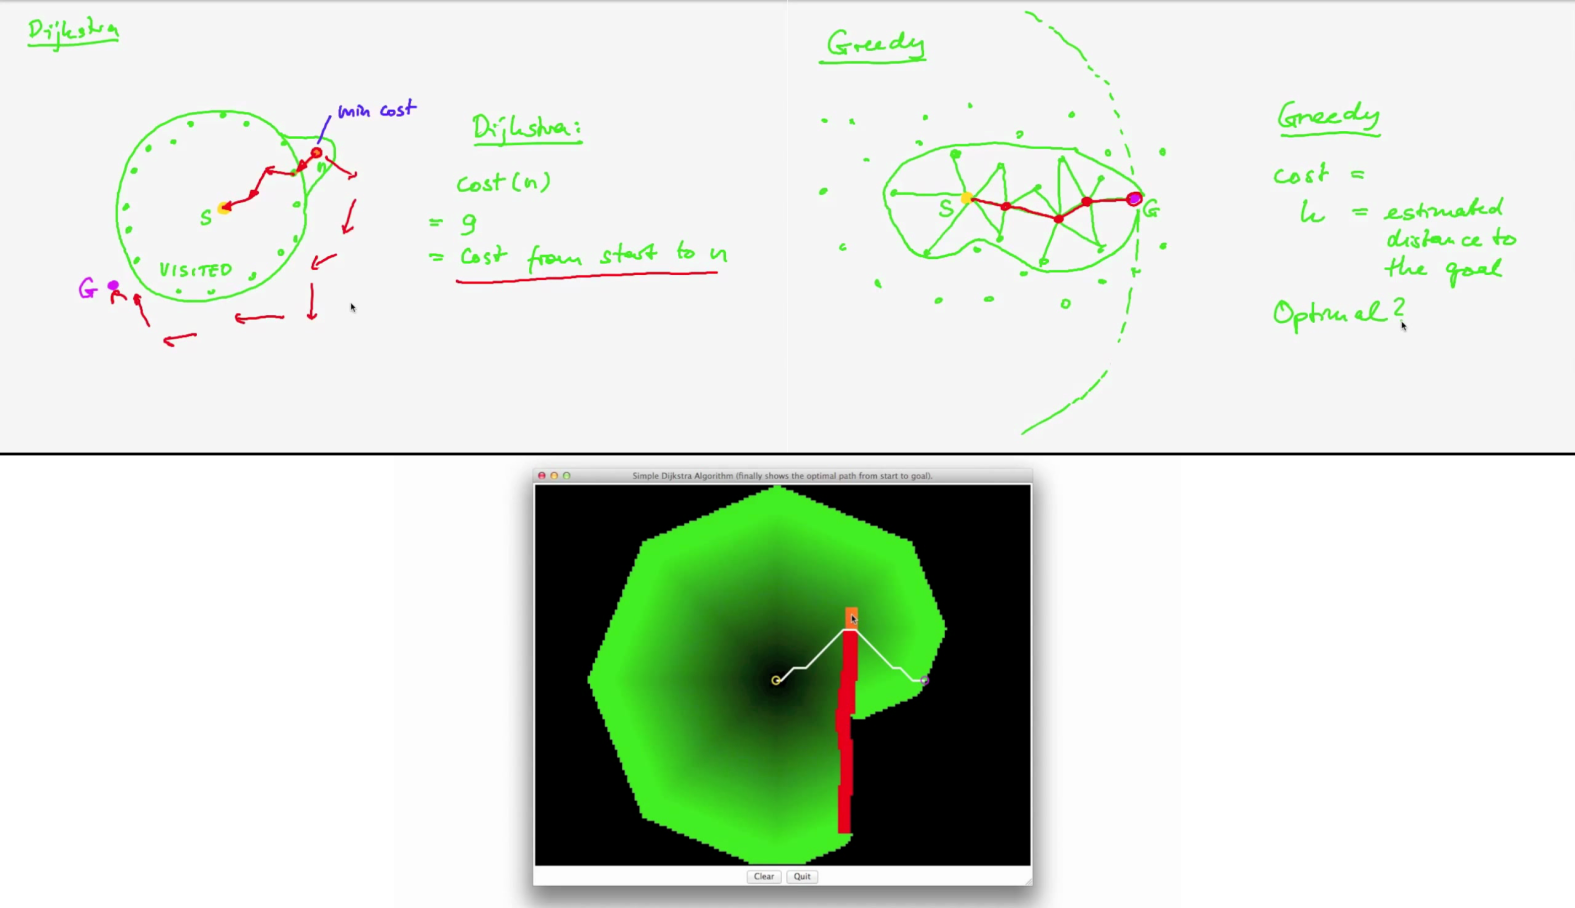 Dijkstra
min cost
n
S
VISITED
G
Dijkstra:
cost(n)
= g
= cost from start to n
Greedy
S
G
Greedy
cost =
h = estimated
distance to
the goal
Optimal?
Simple Dijkstra Algorithm (finally shows the optimal path from start to goal).
Clear
Quit